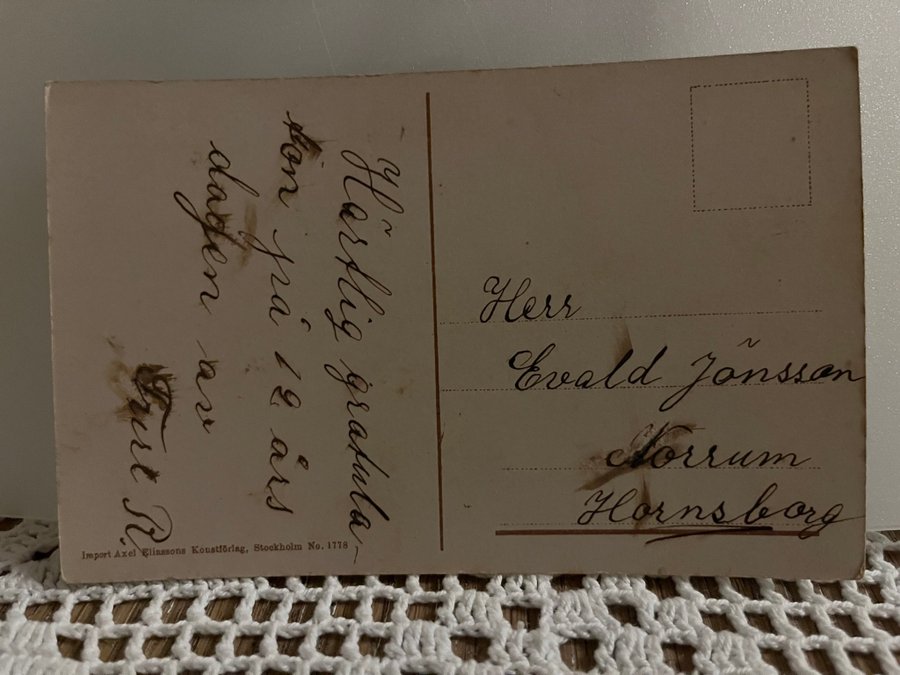 Härtlig gratula-
tion på 12 års
dagen av
R.
Herr
Evald Jönsson
Norrum
Hornsborg
Import Axel Eliassons Konstförlag, Stockholm No. 1778